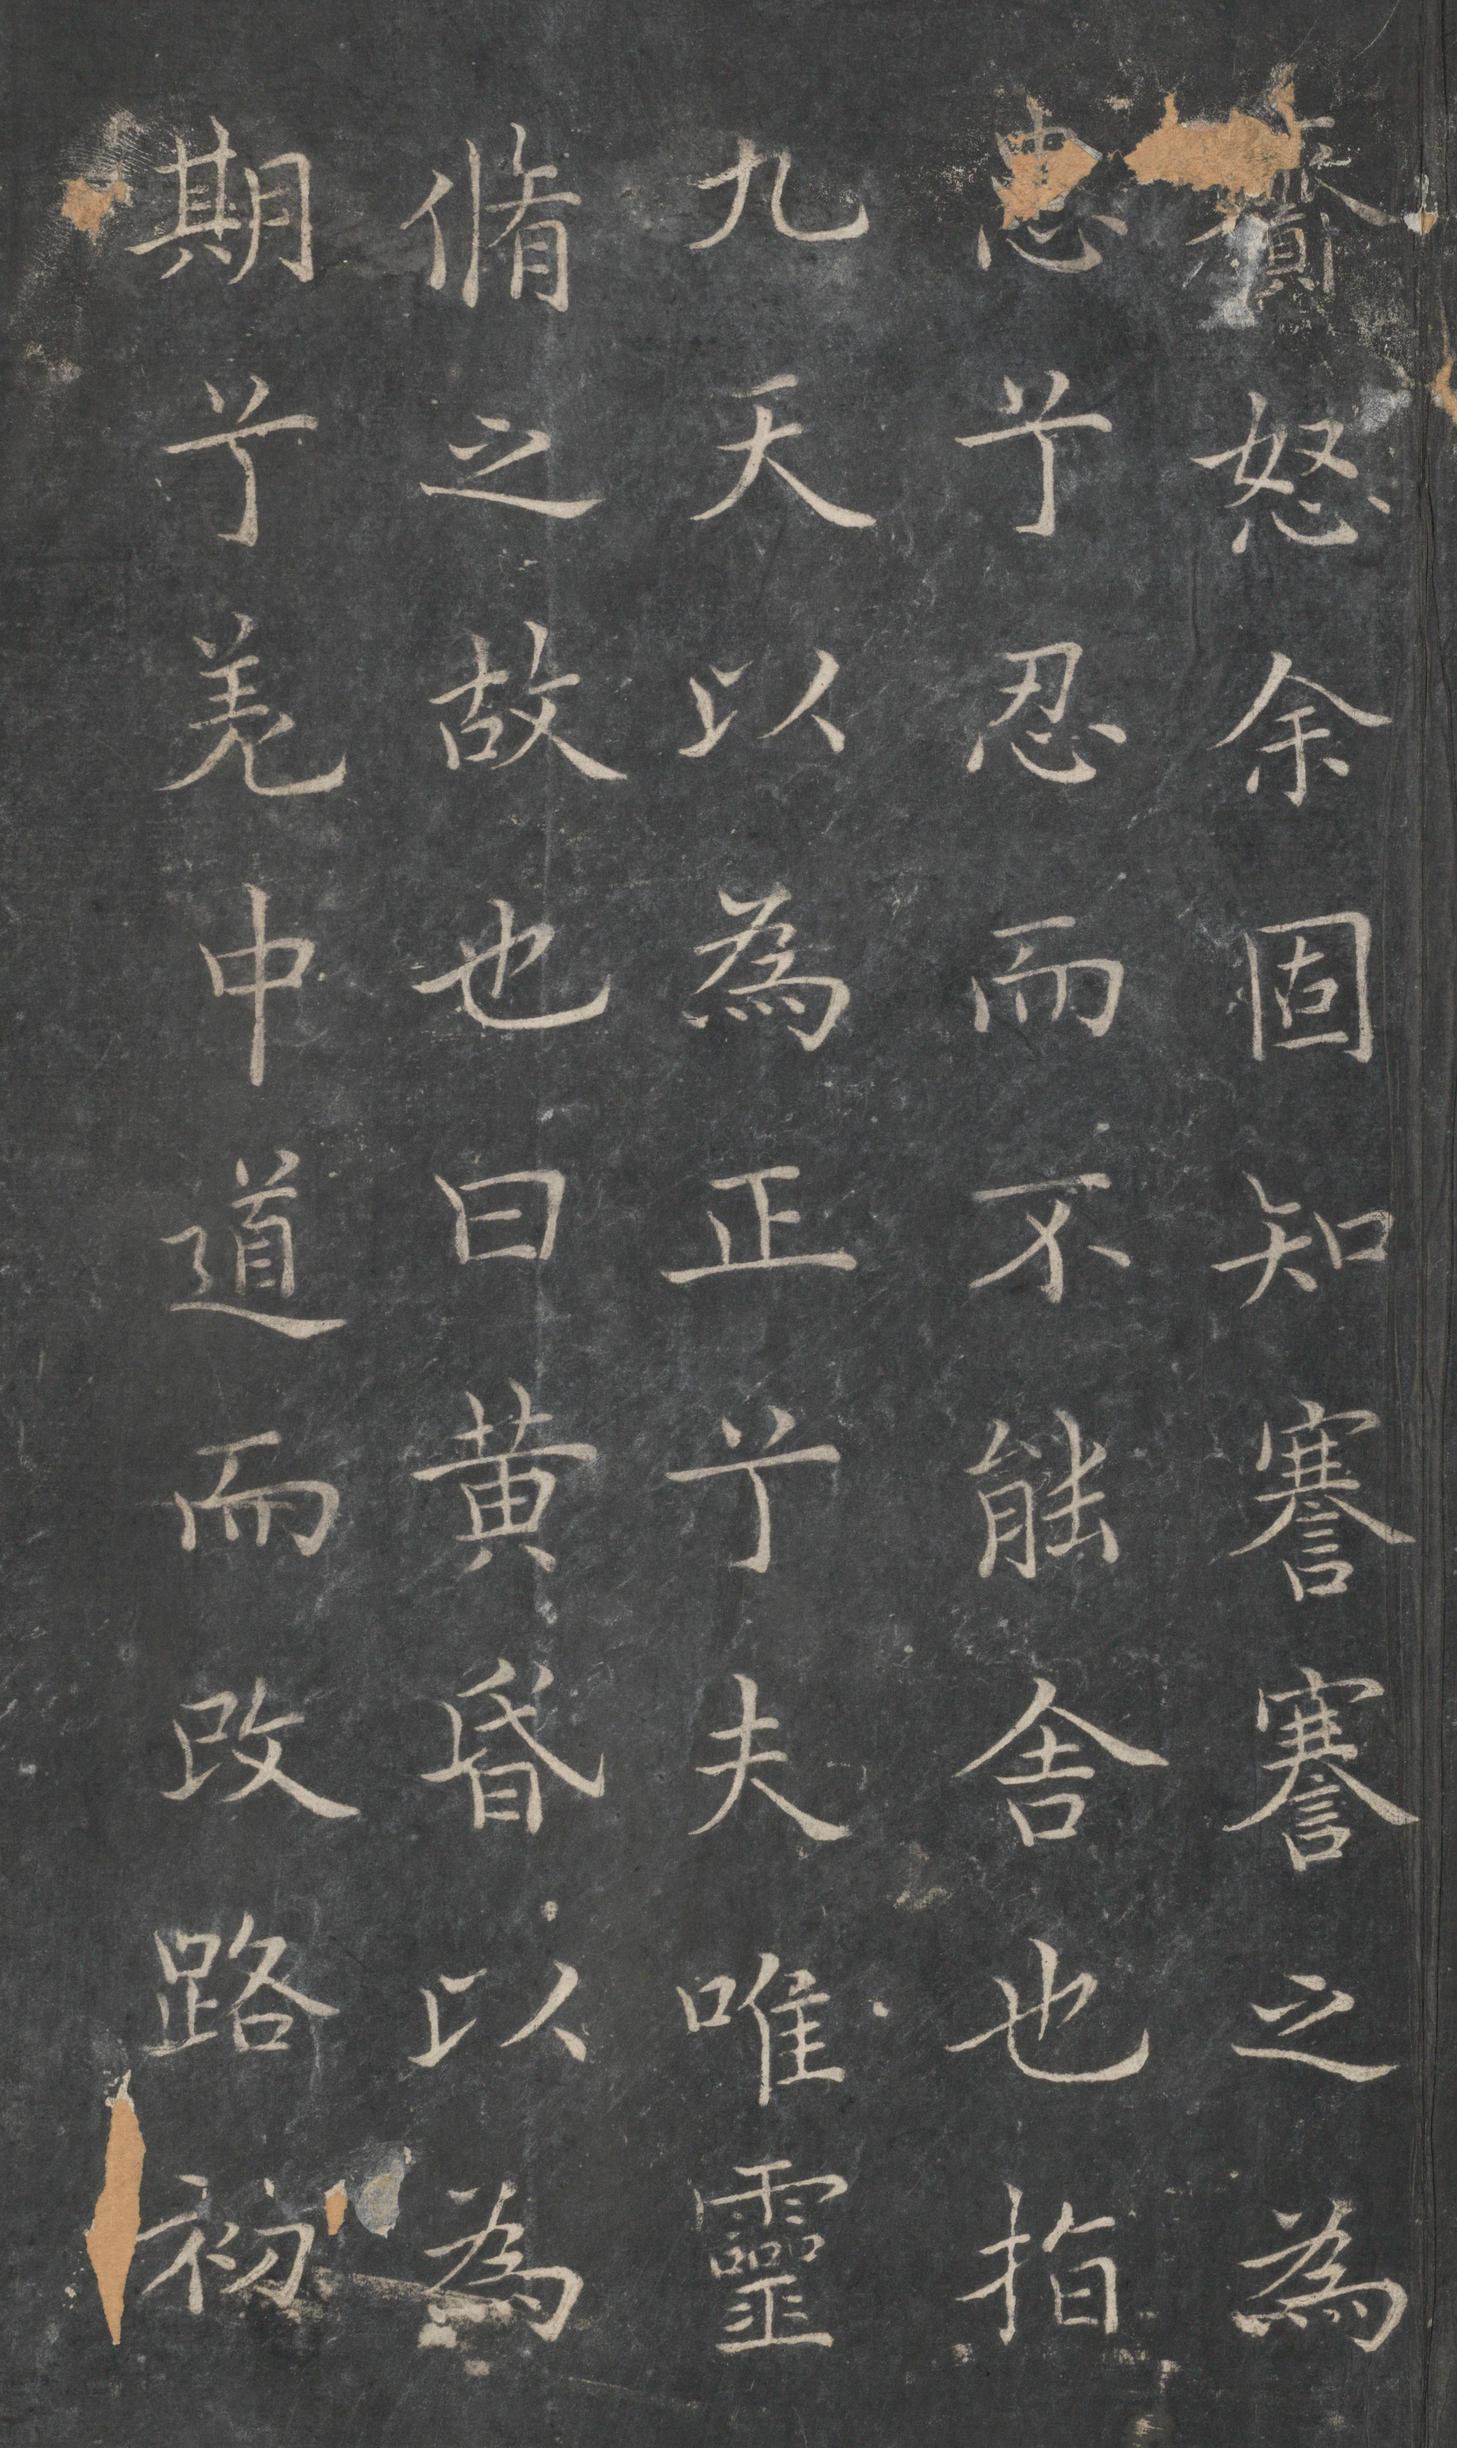 怒余固知謇謇之為
患兮忍而不能舍也指
九天以為正兮夫唯靈
脩之故也曰黄昬以為
期兮羌中道而改路初